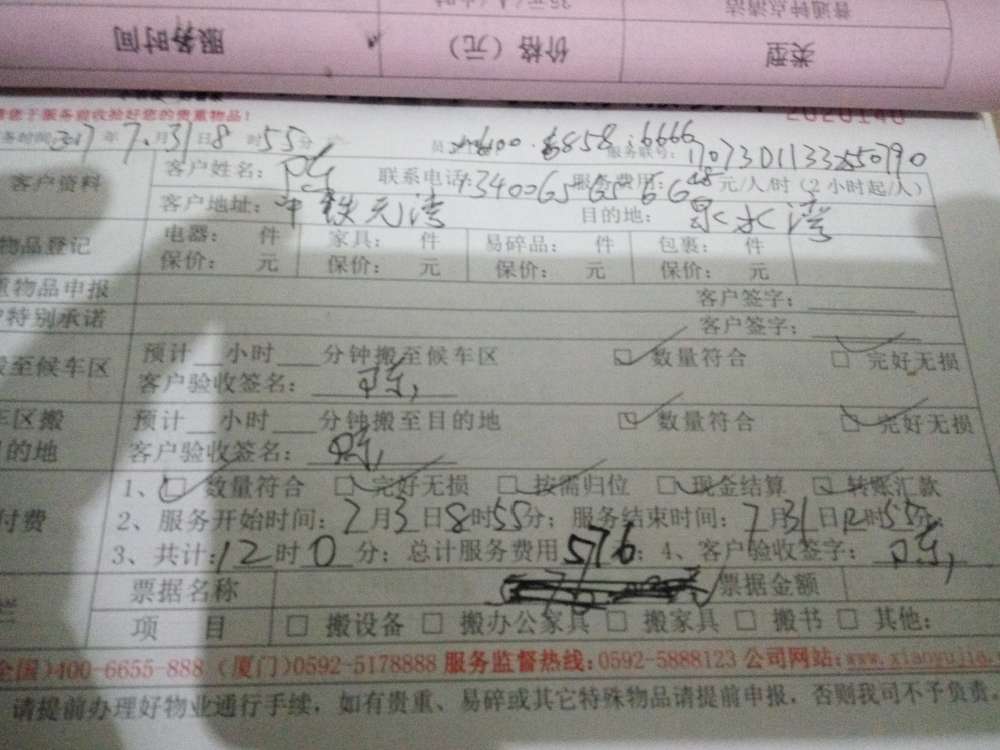 普通钟点清洁
类型 价格（元） 服务时间
您于服务前收拾好您的贵重物品！
务时间:2017年7月31日8时55分 服务联号:
客户资料 客户姓名: 联系电话: 服务费用: 48元/人/时（2小时起/人）
客户地址:中铁元湾 目的地:泉水湾
物品登记 电器: 件 家具: 件 易碎品: 件 包裹: 件
保价: 元 保价: 元 保价: 元 保价: 元
重物品申报 客户签字:
特别承诺 客户签字:
搬至候车区 预计 小时 分钟搬至候车区 数量符合 完好无损
客户验收签名:
车区搬 预计 小时 分钟搬至目的地 数量符合 完好无损
目的地 客户验收签名:
1、 数量符合 完好无损 按需归位 现金结算 转账汇款
付费 2、服务开始时间:7月31日8时55分; 服务结束时间:7月31日12时55分;
3、共计:12时0分; 总计服务费用576; 4、客户验收签字:
票据名称 票据金额
项目 搬设备 搬办公家具 搬家具 搬书 其他:
全国)400-6655-888 (厦门)0592-5178888 服务监督热线:0592-5888123 公司网站:www.xiaoyujia.
请提前办理好物业通行手续，如有贵重、易碎或其它特殊物品请提前申报，否则我司不予负责。